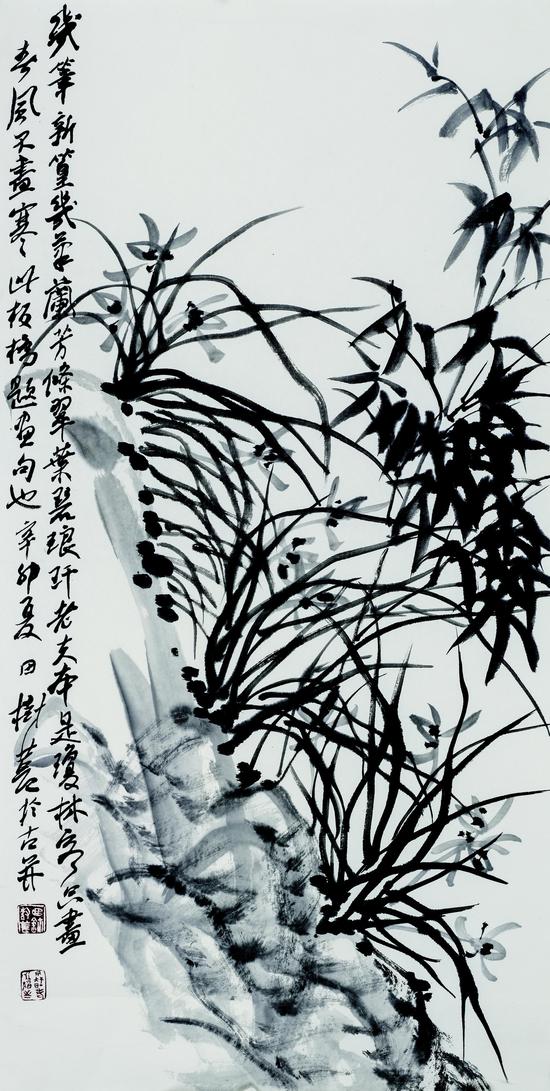 幾筆新篁幾蘭芳條翠葉碧琅玕老夫本是瓊林客只畫
春風不畫寒此板橋題畫句也辛卯夏田樹萇於古并